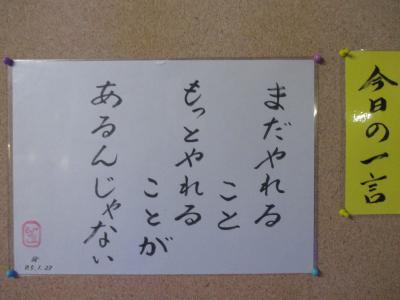 今日の一言
まだやれる
こと
もっとやれる
ことが
あるんじゃない